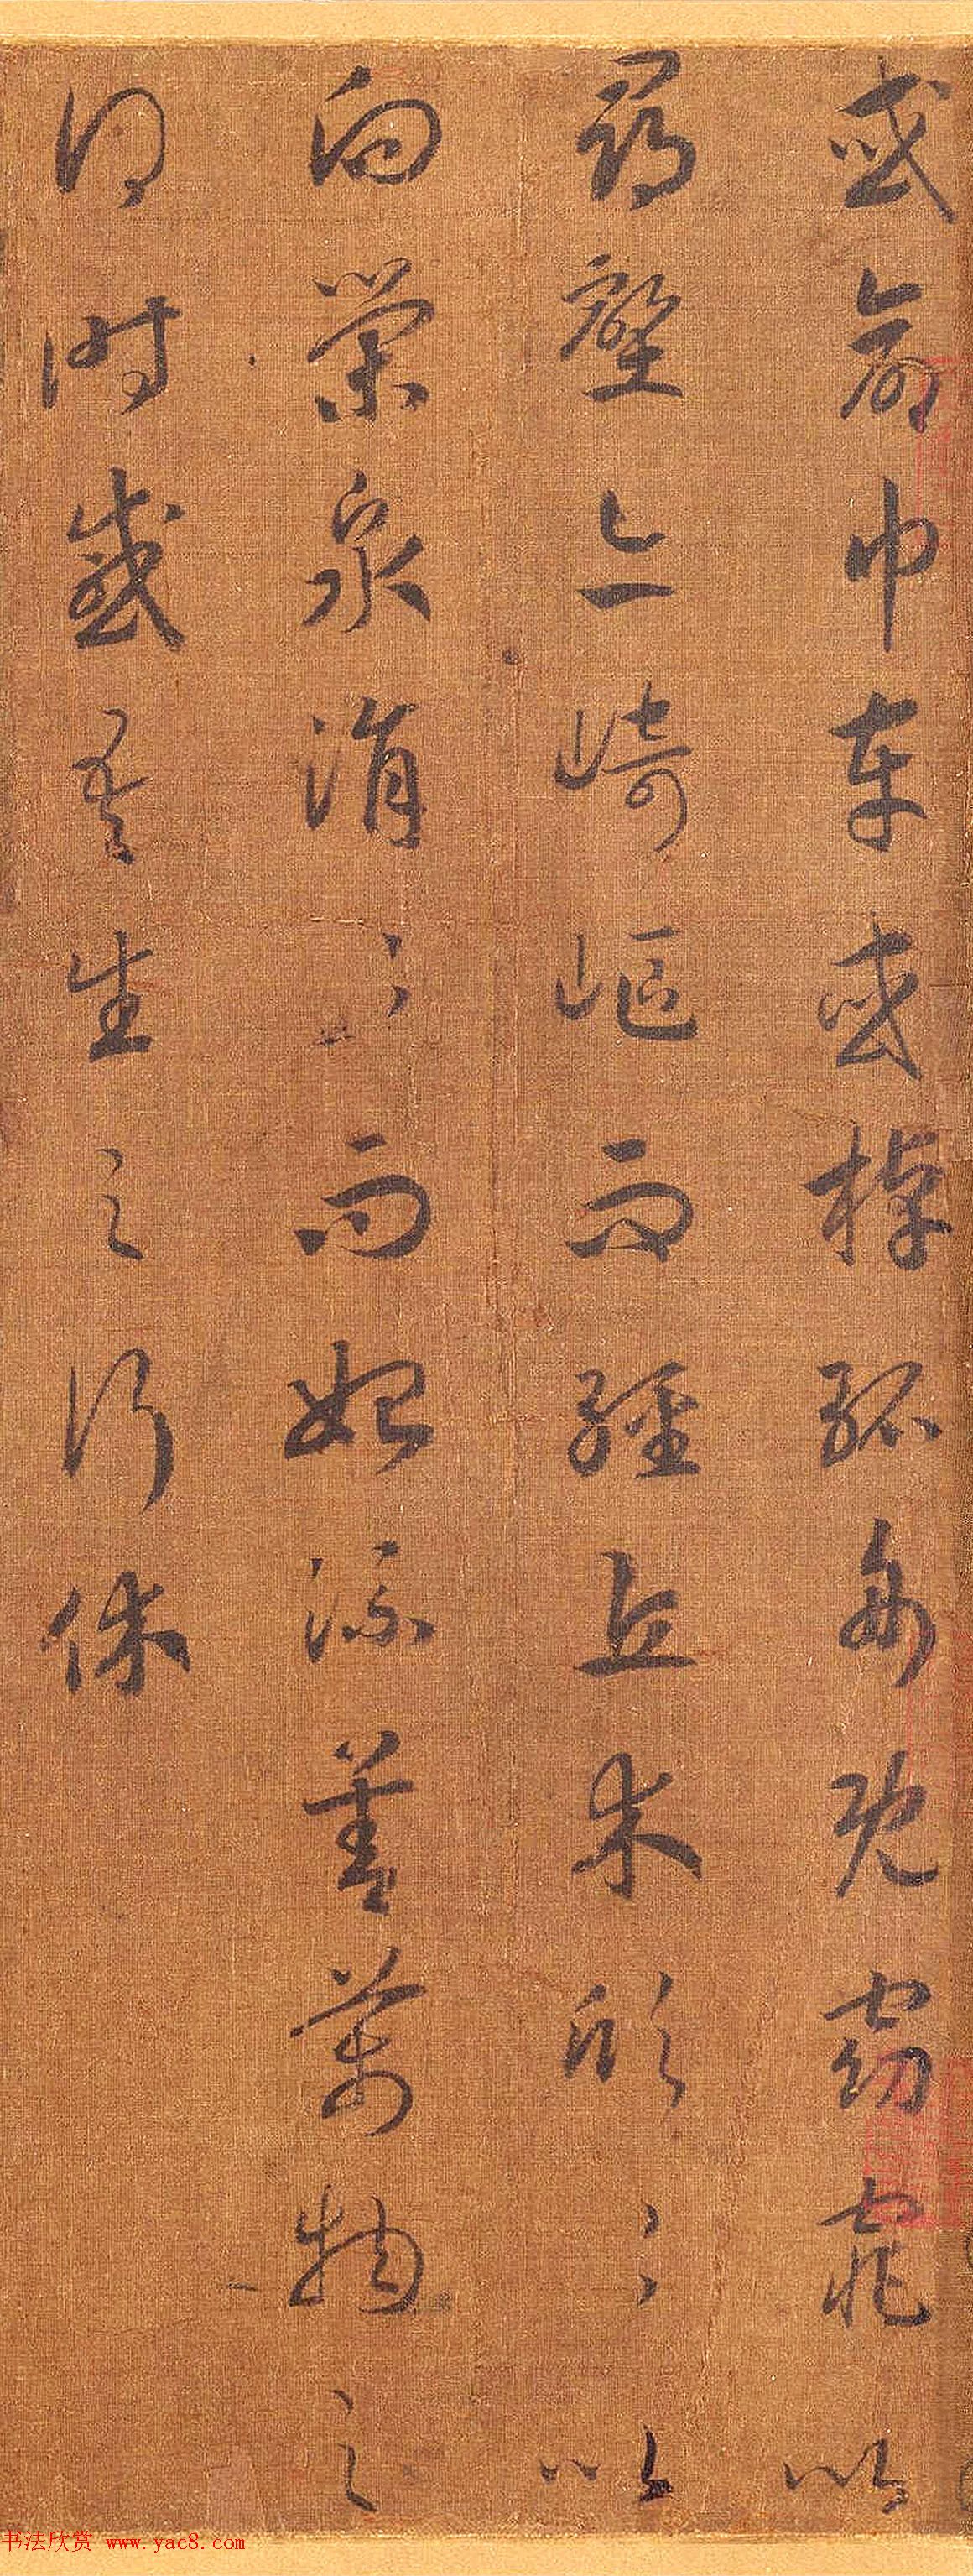 或命巾車或棹孤舟既窈窕以
尋壑亦崎嶇而經丘木欣〻以
向榮泉涓〻而始流善萬物之
得時感吾生之行休
书法欣赏 www.yac8.com